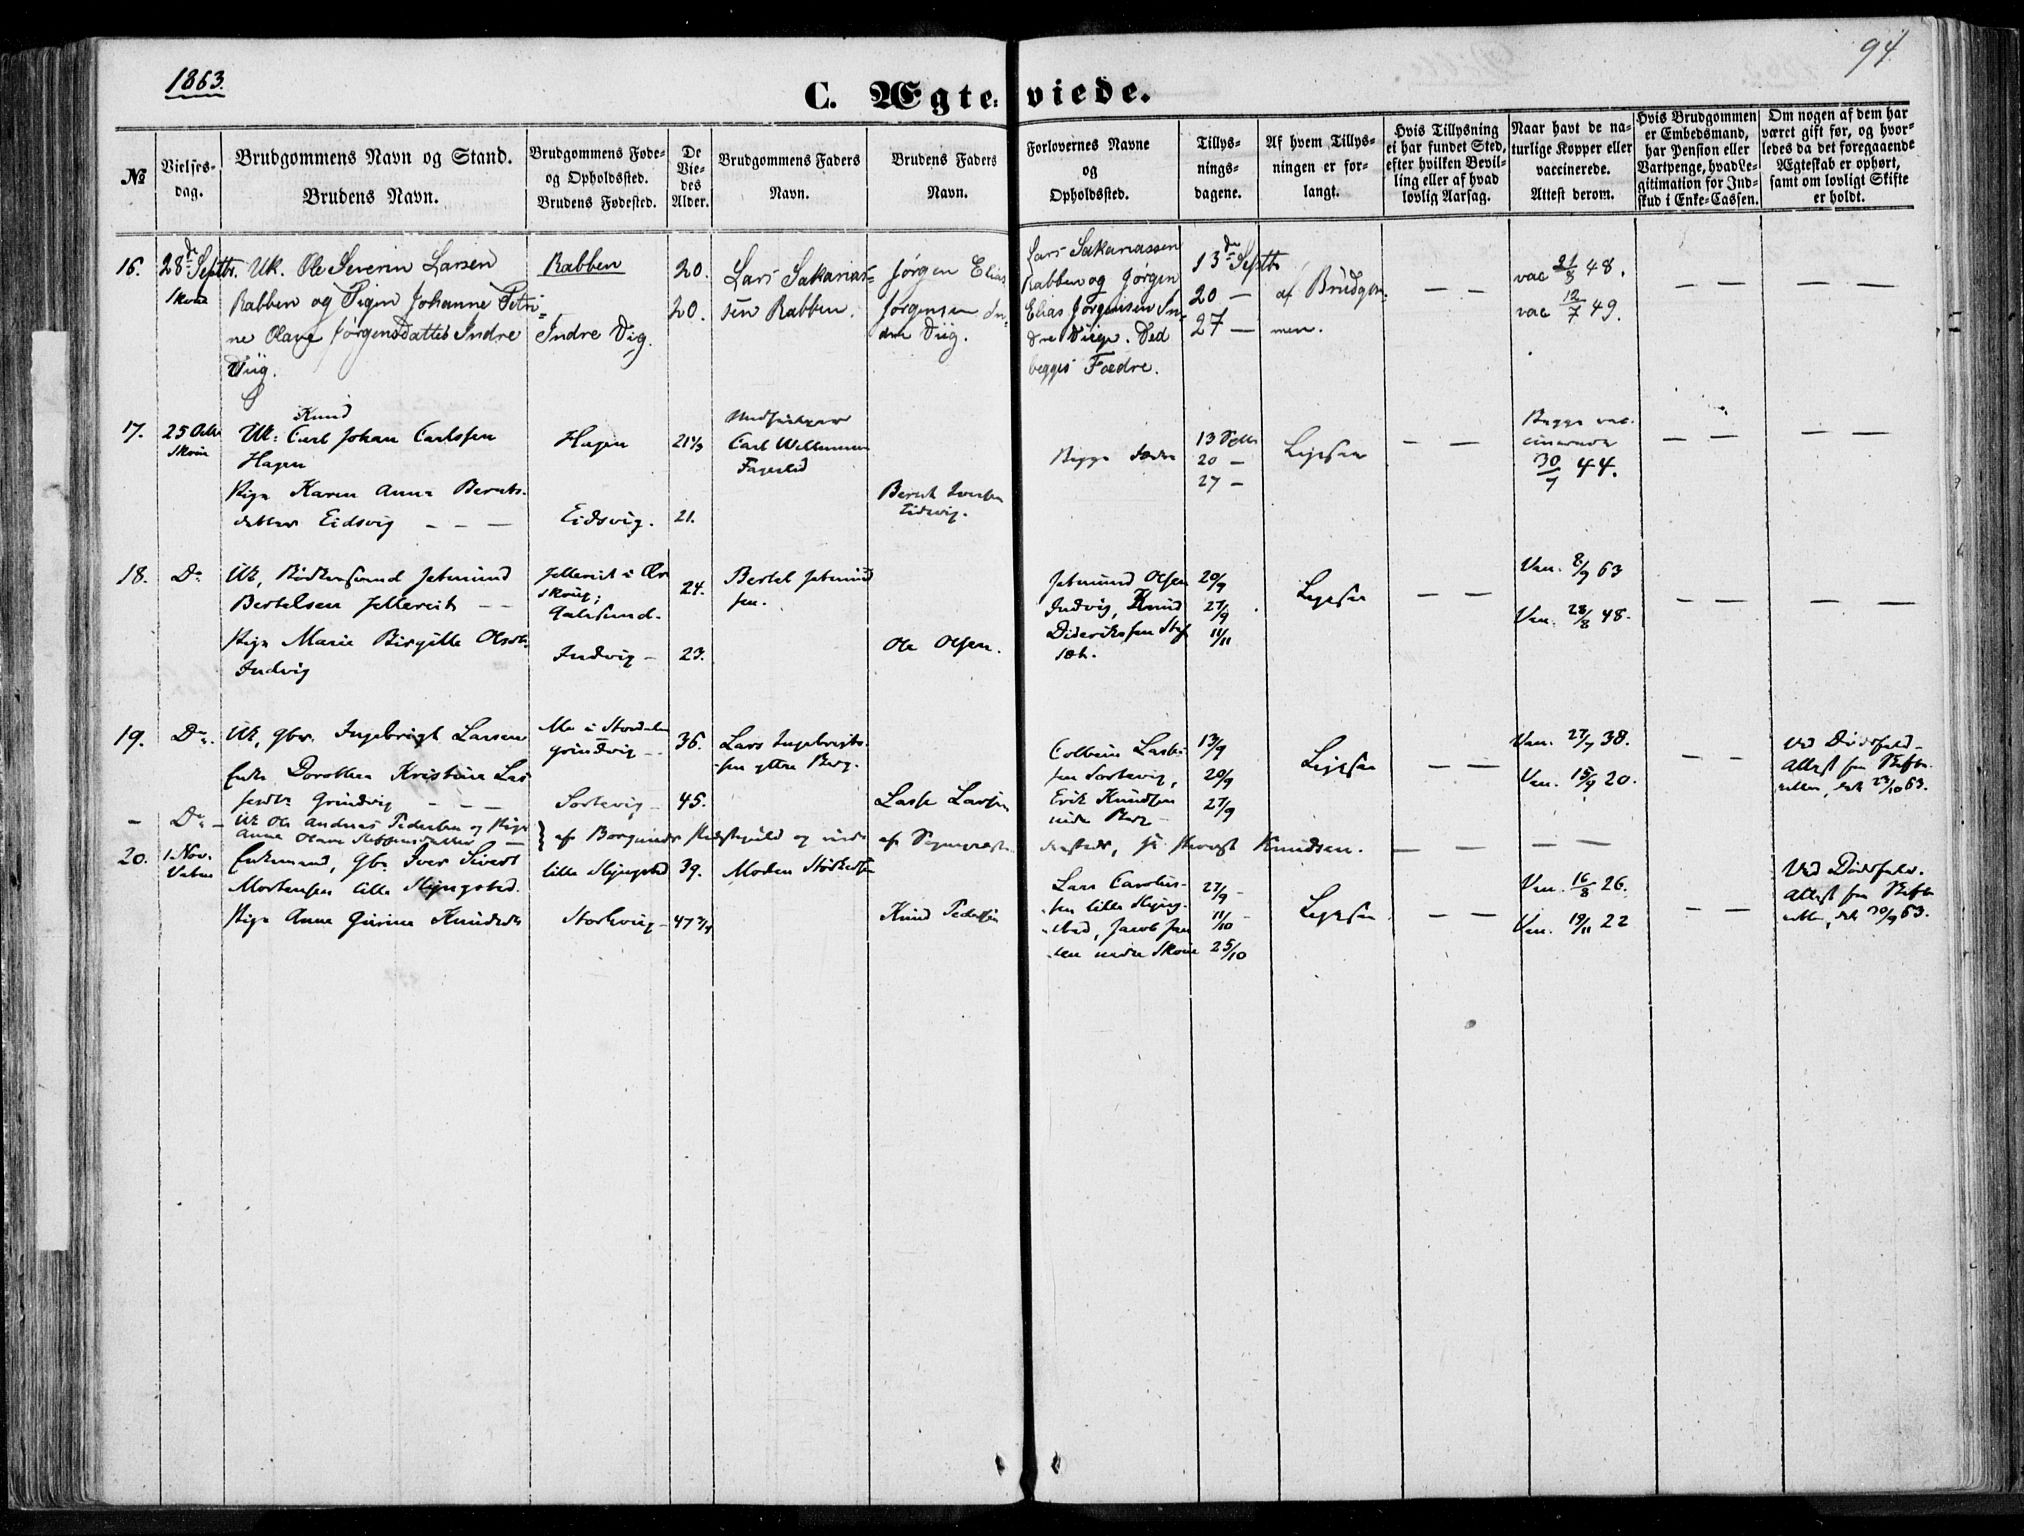 1863.
94.
C. Ægteviede.
№
Vielses-
dag.
Brudgommens Navn og Stand.
Brudens Navn.
Brudgommens Føde-
og Opholdssted.
Brudens Fødested.
De
Vie-
des
Alder.
Brudgommens Faders
Navn.
Brudens Faders
Navn.
Forlovernes Navne
og
Opholdssted.
Tillys-
nings-
dagene.
Af hvem Tillys-
ningen er for-
langt.
Hvis Tillysning
ei har fundet Sted,
efter hvilken Bevil-
ling eller af hvad
lovlig Aarsag.
Naar havt de na-
turlige Kopper eller
vaccinerede.
Attest derom.
Hvis Brudgommen
er Embedsmand,
har Pension eller
Vartpenge, hvad Le-
gitimation for Ind-
skud i Enke-Cassen.
Om nogen af dem har
været gift før, og hvor-
ledes da det foregaaende
Ægteskab er ophørt,
samt om lovligt Skifte
er holdt.
16.
28de Septbr.
Skoue
Uk. Ole Severin Larsen
Rabben og Pigen Johanne Petri-
ne Olave Jørgensdatter Indre
Viig.
Rabben
Indre Viig.
20.
20.
Lars Sakarias-
sen Rabben.
Jørgen Elias
Jørgensen In-
dre Viig.
Lars Sakariassen
Rabben og Jørgen
Elias Jørgensen In-
dre Viige. Ved
begges Fædre.
13de Septbr
20 —
27 —
af Brudgom-
men.
— —
vac 21/8 48.
vac 12/7 49.
— —
— —
17.
25 Octbr
Skoue
Knud
Uk: Carl Johan Carlssen
Hagen
Pige Karen Anna Bernts-
datter Eidsvig — — —
Hagen
Eidsvig.
21 1/2
21.
Carl Willumsen
Fagerlid
Bernt Iversen
Eidsvig.
Begges Fædre
13 Septbr
20 —
27 —
Ligesaa
— —
Begge vac-
cinerede
30/7 44.
— —
— —
18.
Do
Uk, Jetmund
Bertelsen Jellereit — —
Pige Marie Birgitte Olsdtr
Indvig
Jellereit i Ør-
skoug;
Aalesund.
Indvig —
24.
23.
Bertel Jetmund-
sen.
Ole Olsen.
Jetmund Olsen
Indvig, Knud
Dideriksen
20/9
27/9
11/11
Ligesaa
— —
Vac. 8/9 63
Vac. 28/8 48.
— —
— —
19.
Do.
Uk, Gbr. Ingebrigt Larsen
Enke Dorothea Kristine Las-
sesdtr Grindvig — — —
Moe i Stordalen
Grindvig —
Sortevig —
36.
45.
Lars Ingebrigts-
sen yttre Berg.
Lasse Larsen
Colbein Lars-
sen Sortevig,
Erik Knudsen
nedre Berg —
13/9
20/9
27/9
Ligesaa
— —
Vac. 27/7 38.
Vac. 15/9 20.
— —
Ved Dødsfald —
Attest fra Skifte-
retten, dat. 23/10 63.
—
Do —
Uk Ole Andreas Pedersen og Pige
Anne Olave
} af Borgunds Præstegjeld og viede af Sognepræsten
dersteds, Hr Provst Knudsen.
— — — —
20.
1 Nov.
Vatne
Enkemand, Gbr. Iver Sivert
Mortensen lille Slyngstad.
Pige Anne Gurine Knudsdtr
lille Slyngstad
Stortevig —
39.
47 3/4
Knud Pedersen
Lars Carolus-
sen lille Slyng-
stad, Jacob Jen-
sen nedre Skoue
27/9 —
11/10 —
25/10
Ligesaa
— —
Vac. 16/8 26.
Vac. 19/11 22
— —
Ved Dødsfald.
Attest fra Skifte-
retten, dat. 30/9 63.